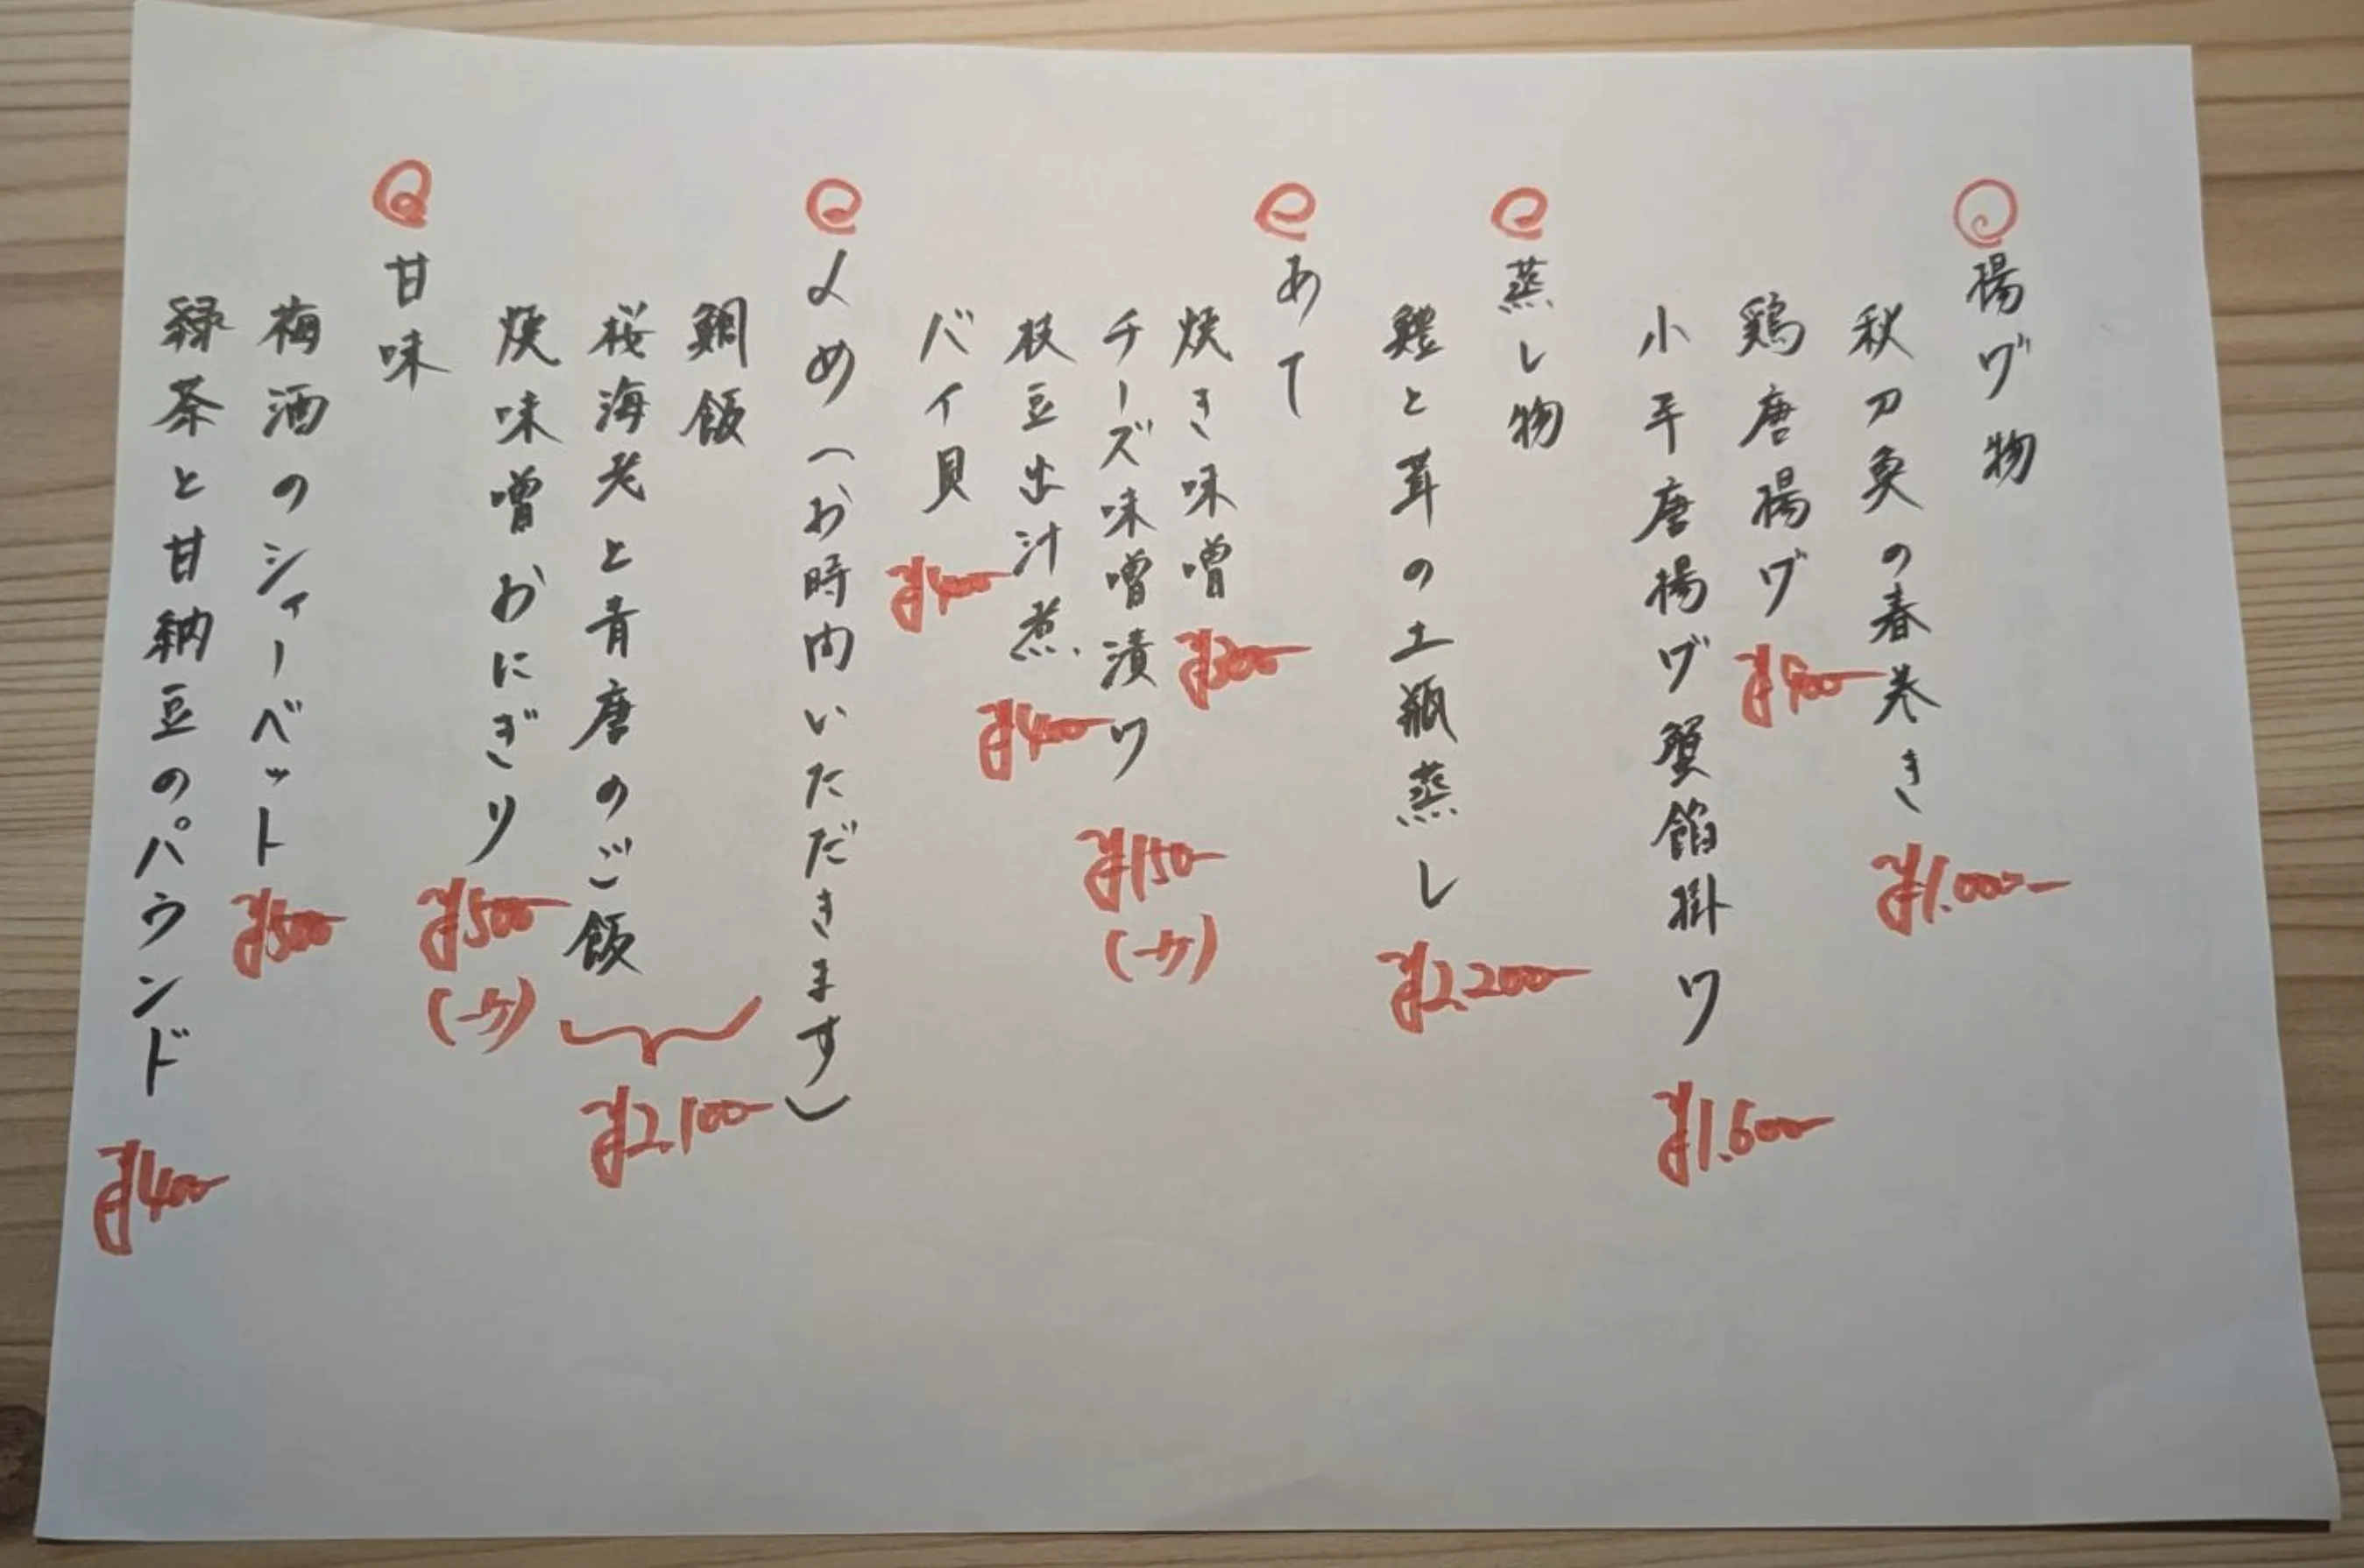 揚ゲ物
秋刀魚の春巻き ¥1.000-
鶏唐揚ゲ ¥900-
小芋唐揚ゲ蟹餡掛ケ ¥1.600-
蒸し物
鱧と茸の土瓶蒸し ¥2.200-
あて
焼き味噌 ¥300-
チーズ味噌漬ケ ¥150- (一ケ)
枝豆出汁煮 ¥400-
バイ貝 ¥400-
〆め(お時間いただきます)
鯛飯
桜海老と青唐のご飯
¥2.100-
焼味噌おにぎり ¥500- (一ケ)
甘味
梅酒のシャーベット ¥500-
緑茶と甘納豆のパウンド ¥400-